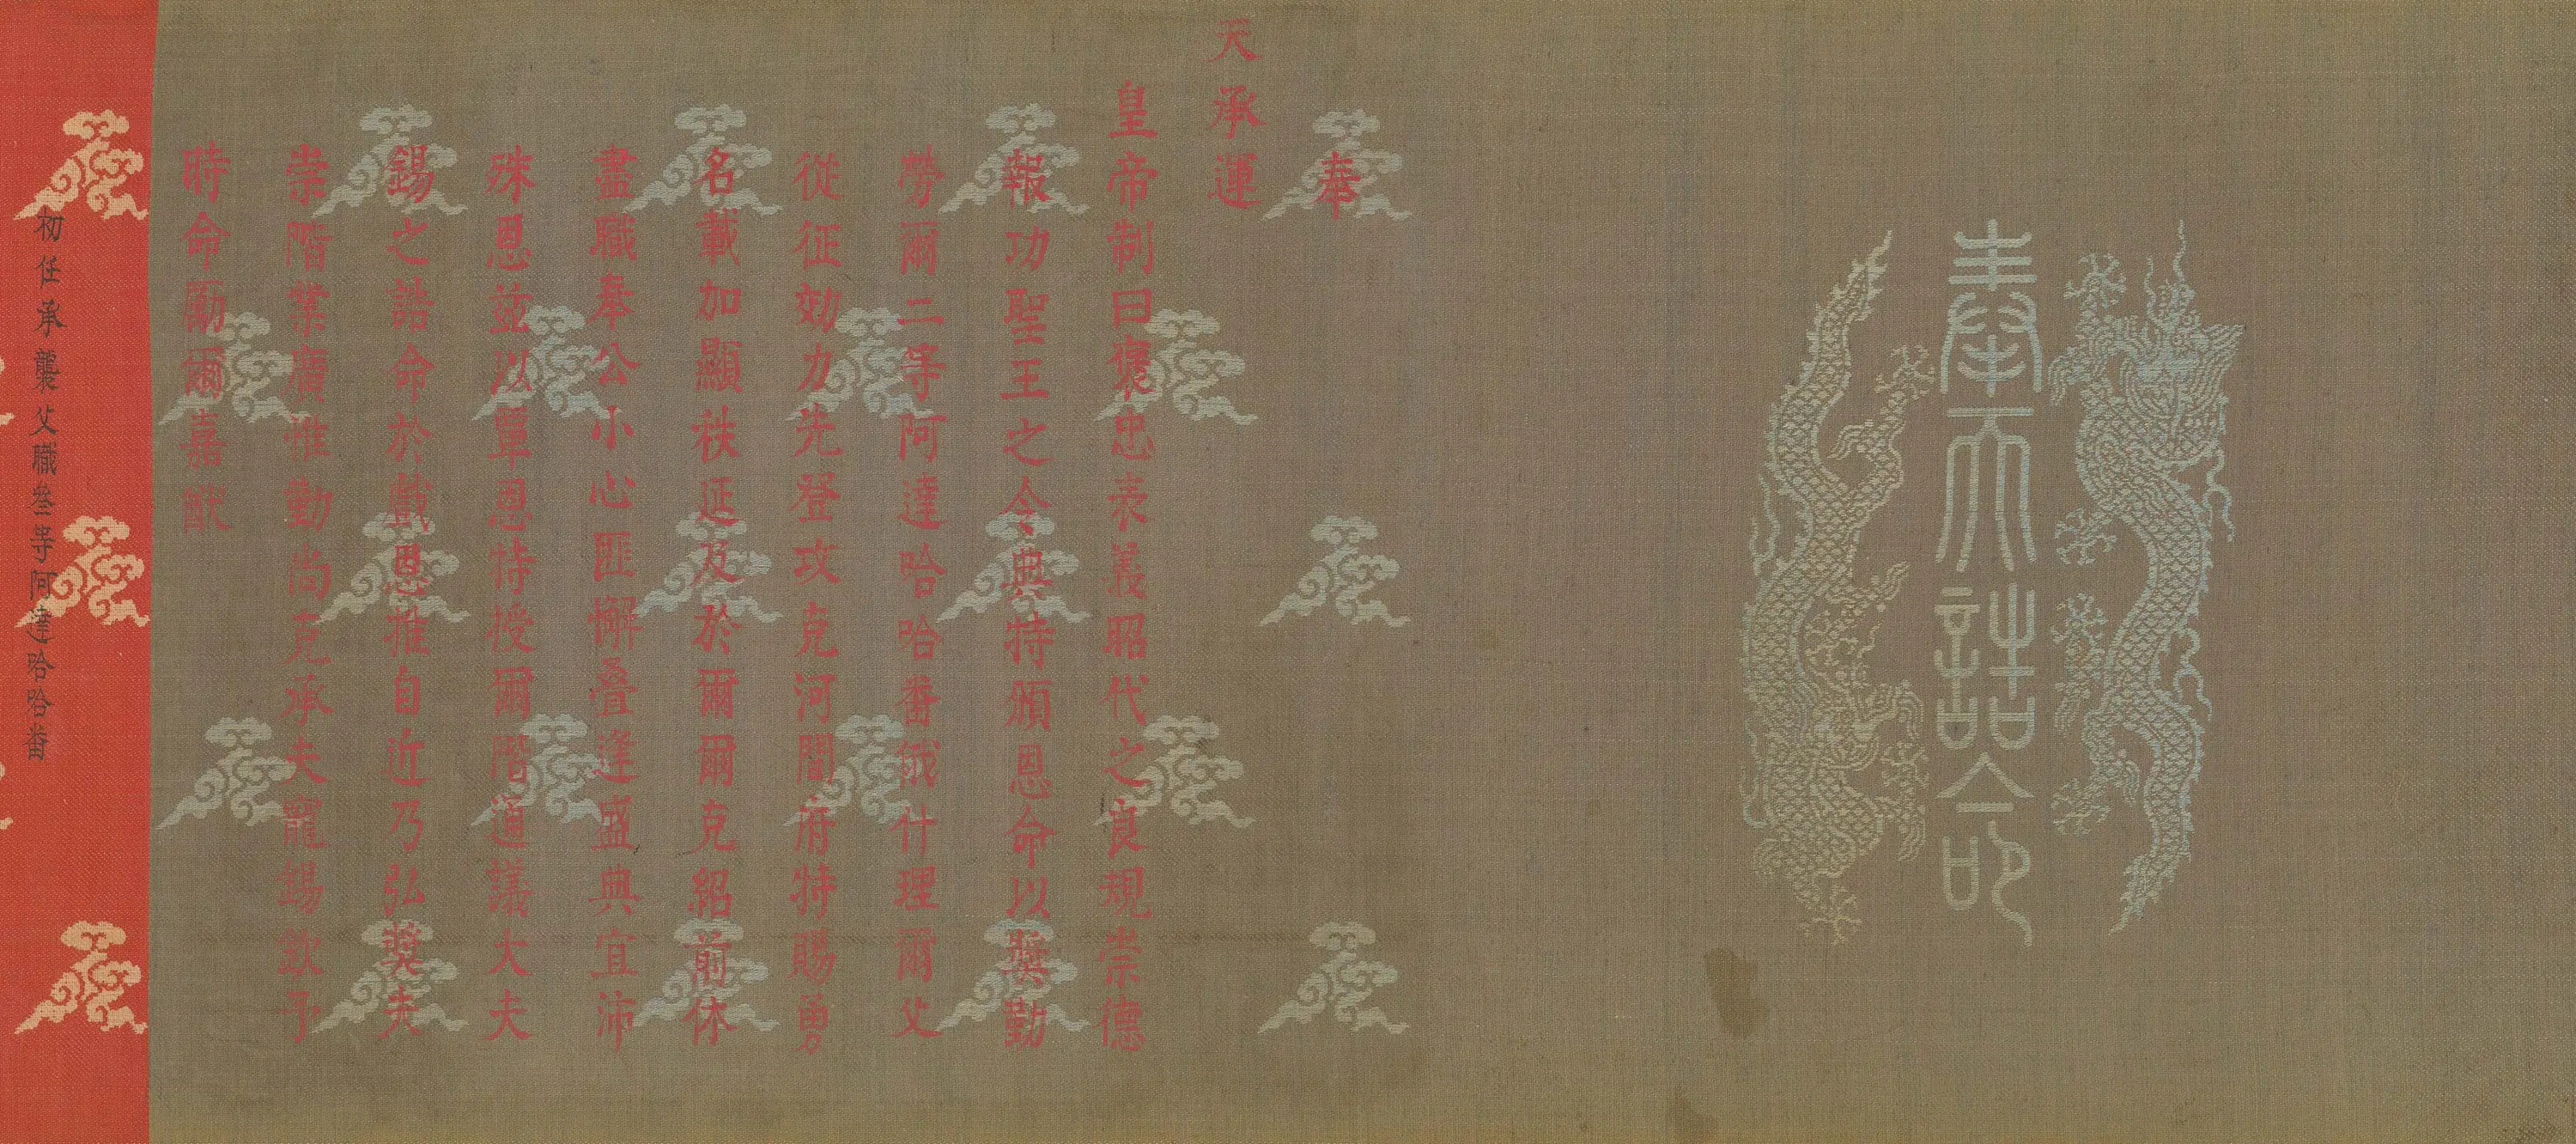 奉天誥命
奉
天承運
皇帝制曰褒忠表義昭代之良規崇德
報功聖王之令典特頒恩命以獎勤
勞爾二等阿達哈哈番俄什理爾父
從征効力先登攻克河間府特賜勇
名載加顯秩延及於爾爾克紹前休
盡職奉公小心匪懈疊逢盛典宜沛
殊恩玆以覃恩特授爾階通議大夫
錫之誥命於戲恩推自近乃弘獎夫
崇階業廣惟勤尚克承夫寵錫欽予
時命勵爾嘉猷
初任承襲父職叄等阿達哈哈番